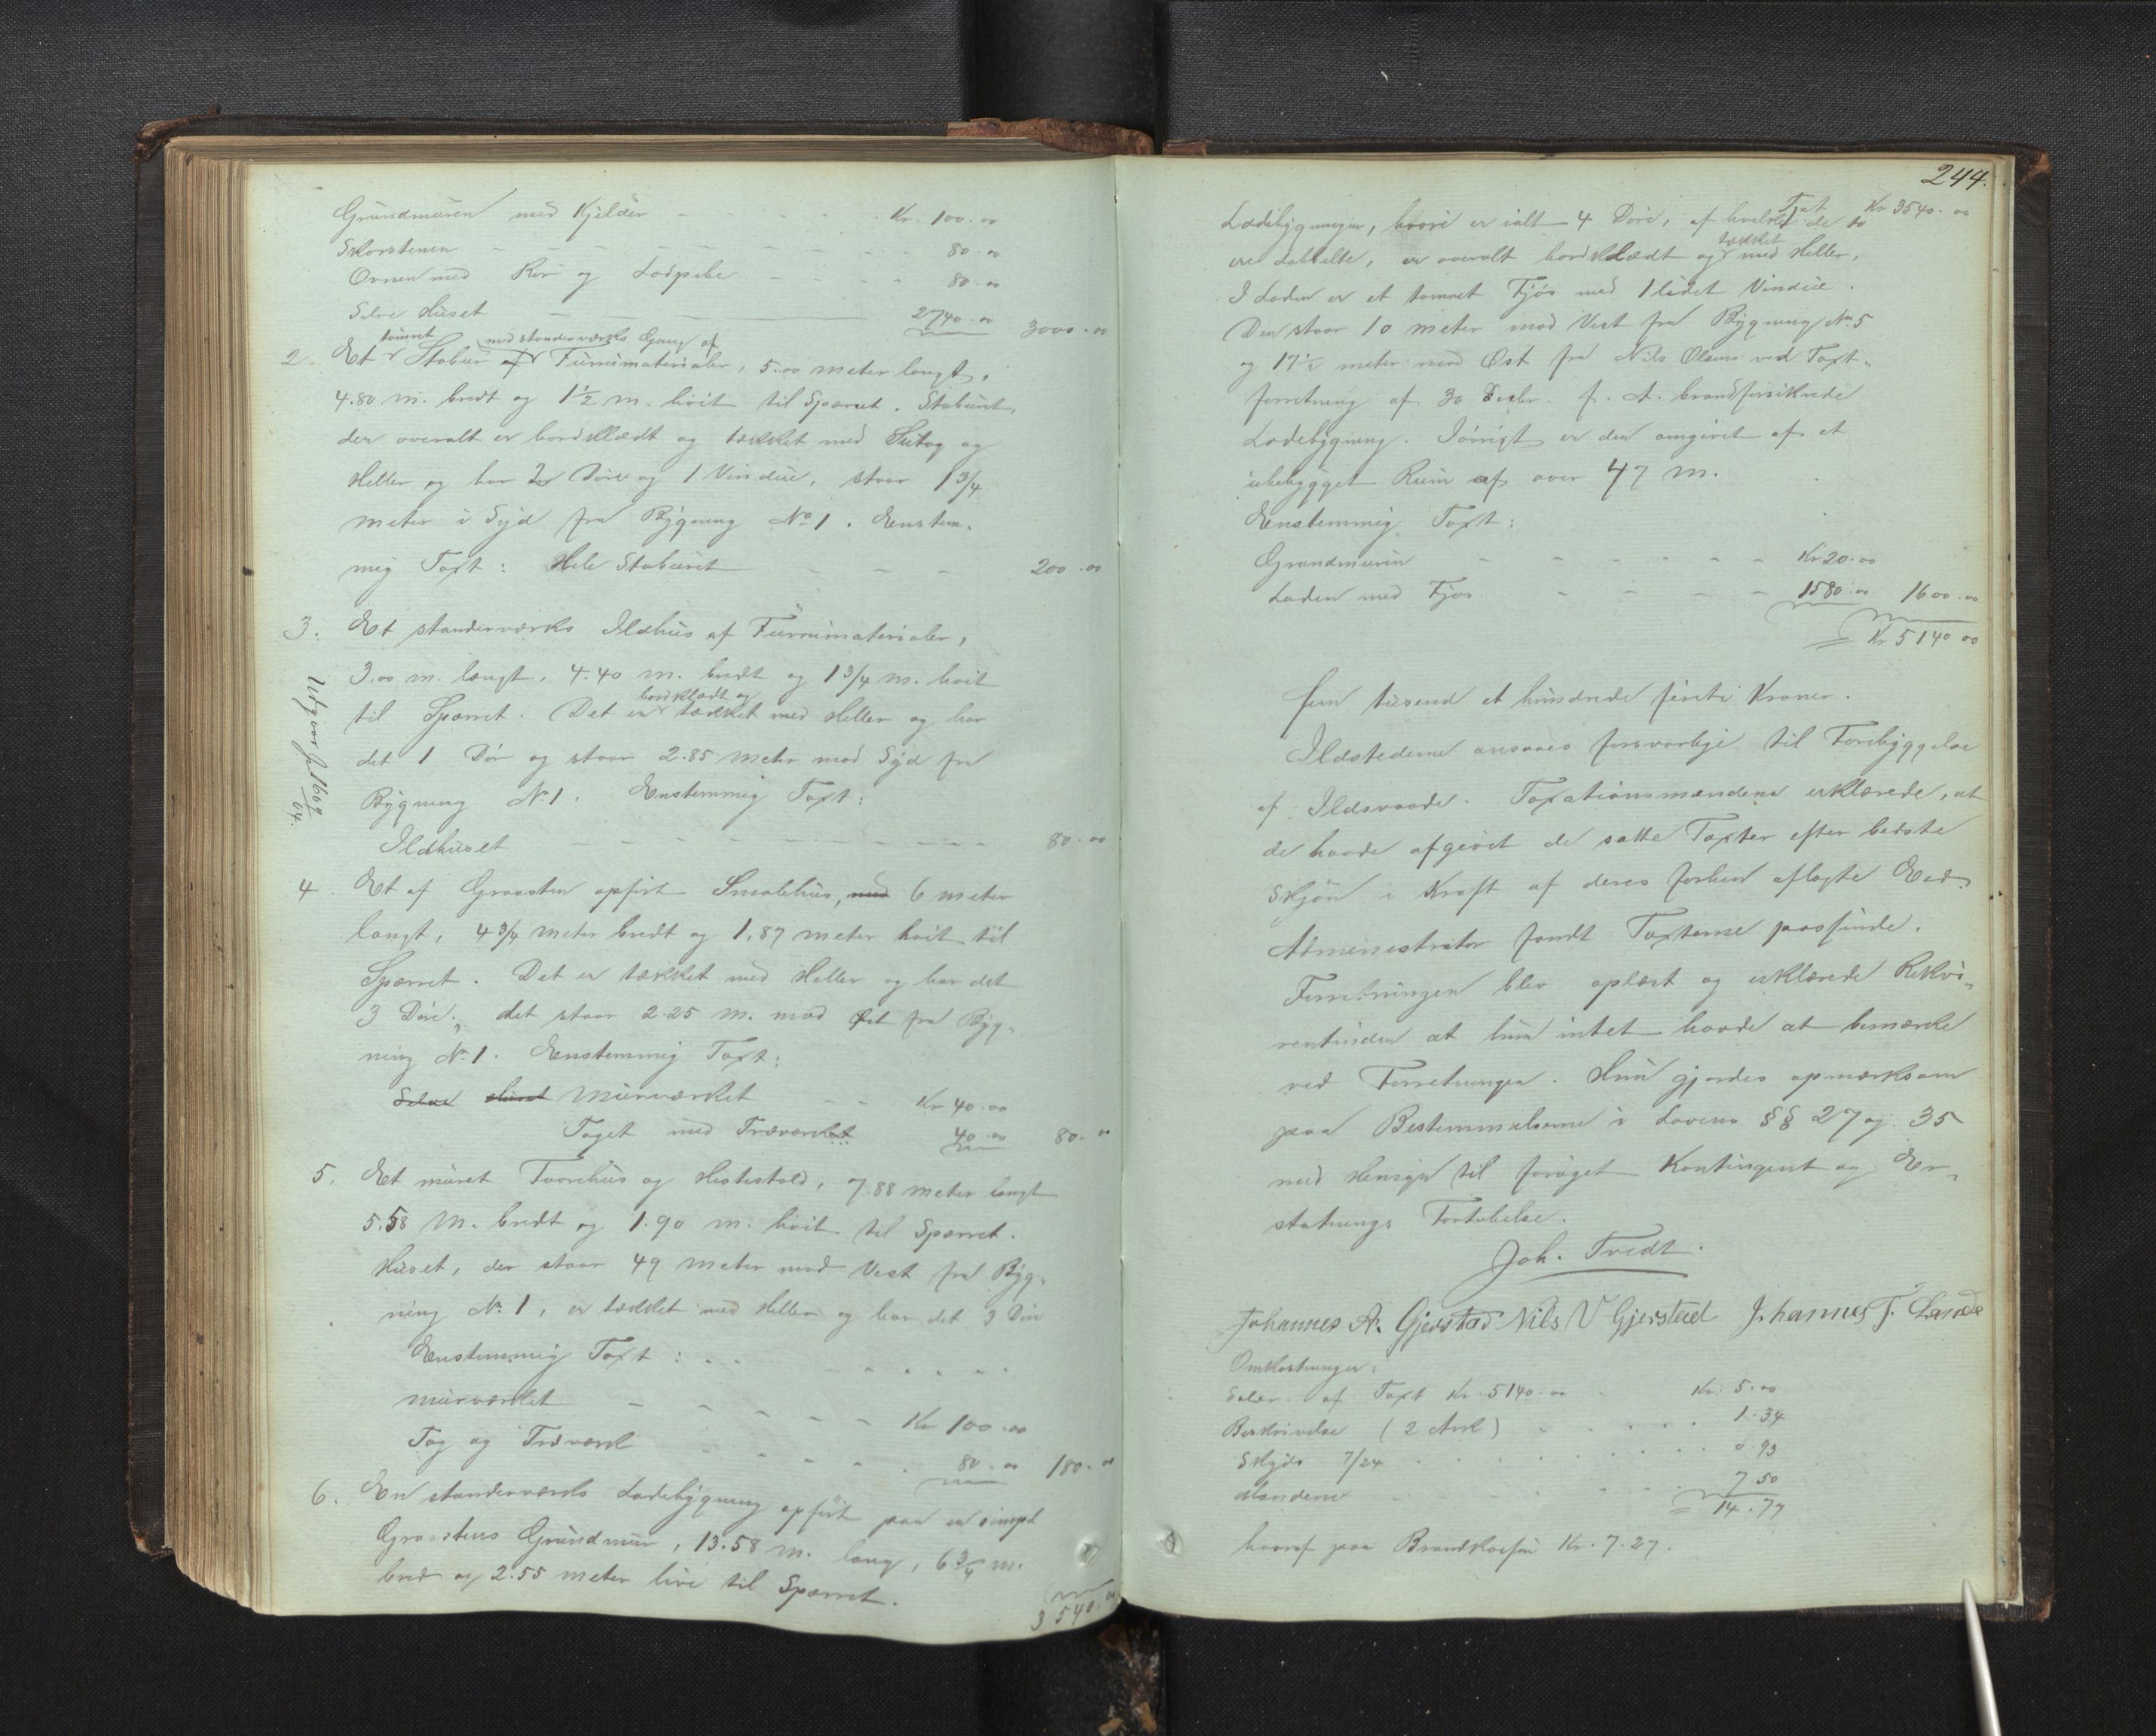 Grundmuren med Kjelder - - - - Kr. 100.00
Skorstenen - - - - - - - 80.00
Ovnen med Rør og Ladpibe - - - - 80.00
Selve Huset - - - 2740.00 3000.00
tømret med standerværks Gang af
2. Et Stabur af Furrumaterialer, 5.00 meter langt,
4.80 m. bredt og 1 1/2 m. høit til Sparret. Staburet,
der overalt er bordklædt og tækket med Sutag og
Heller og har 2 Døre og 1 Vindue, staar 1 3/4
meter i Syd fra Bygning No 1. Enstem-
mig Taxt: Hele Staburet - - - 200.00
3. Et standerværks Ildhus af Furrumaterialer,
3.00 m. langt, 4.40 m. bredt og 1 3/4 m. høit
bordklædt og
til Sparret. Det er tækket med Heller og har
det 1 Dør og staar 2.85 meter mod Syd fra
Bygning No 1. Enstemmig Taxt:
Ildhuset - - - - - - - - - 80.00
Utgaar
04.
4. Et af Graasten opført Smalehus, med 6 meter
langt, 4 3/4 meter bredt og 1,87 meter høit til
Sparret. Det er tækket med Heller og har det
3 Døre, det staar 2.25 m. mod Øst fra Byg-
ning No 1. Enstemmig Taxt:
Selve Huset Murværket - - Kr 40.00
Taget med Træværket 40.00 80.00
5. Et muret Taarehus og Hestestald, 7.88 meter langt
5.58 m. bredt og 1.90 m. høit til Sparret.
Huset, der staar 49 meter mod Vest fra Byg-
ning No 1, er tækket med Heller og har det 3 Døre
Enstemmig Taxt:
Murværket - - - - - Kr 100.00
Tag og Træværk - - - - 80.00 180.00
6. En standerværks Ladebygning opført paa en simpel
Graastens Grundmur, 13.58 m. lang, 6 3/4 m.
bred og 2.55 meter høi til Sparret.
3540.00
244.
Tpt Kr 3540.00
Ladebygningen, hvori er ialt 4 Døre, af hvilke de to
tækket
ere dobbelte, er overalt bordklædt og med Heller,
I Laden er et tømret Fjøs med 1 lidet Vindue.
Den staar 10 meter mod Vest fra Bygning No 5
og 17 1/2 meter mod Øst fra Nils Olsens ved Taxt-
forretning af 30 Decbr. f. A. brandforsikrede
Ladebygning. Iøvrigt er den omgivet af et
ubebygget Rum af over 47 m.
Enstemmig Taxt:
Grundmuren - - - - - - Kr 20.00
Laden med Fjøs - - - - 1580.00 1600.00
Kr 5140 00
fem tusend et hundrede firti Kroner.
Ildstederne ansaaes forsvarlige til Forebyggelse
af Ildsvaade. Taxationsmændene erklærede, at
de havde afgivet de satte Taxter efter bedste
Skjøn i Kraft af deres forhen aflagte Eed.
Administrator fandt Taxterne passende.
Forretningen blev oplæst og erklærede Rekvi-
rentinden at hun intet havde at bemærke
ved Forretningen. Hun gjordes opmærksom
paa Bestemmelserne i Lovens §§ 27 og 35
med Hensyn til forøget Kontingent og Er-
statnings Fortabelse.
Joh. Tvedt.
Johannes A. Gjerstad Nils N Gjerstad Johannes J.
Omkostninger:
Salær af Taxt Kr. 5140.00 - Kr: 5.00
Beskrivelse (2 Ark) - - - 1.34
Skyds 7/24 - - - 0.93
Mændene - - - 7 50
14.77
hvoraf paa Brandkassen Kr. 7.27.